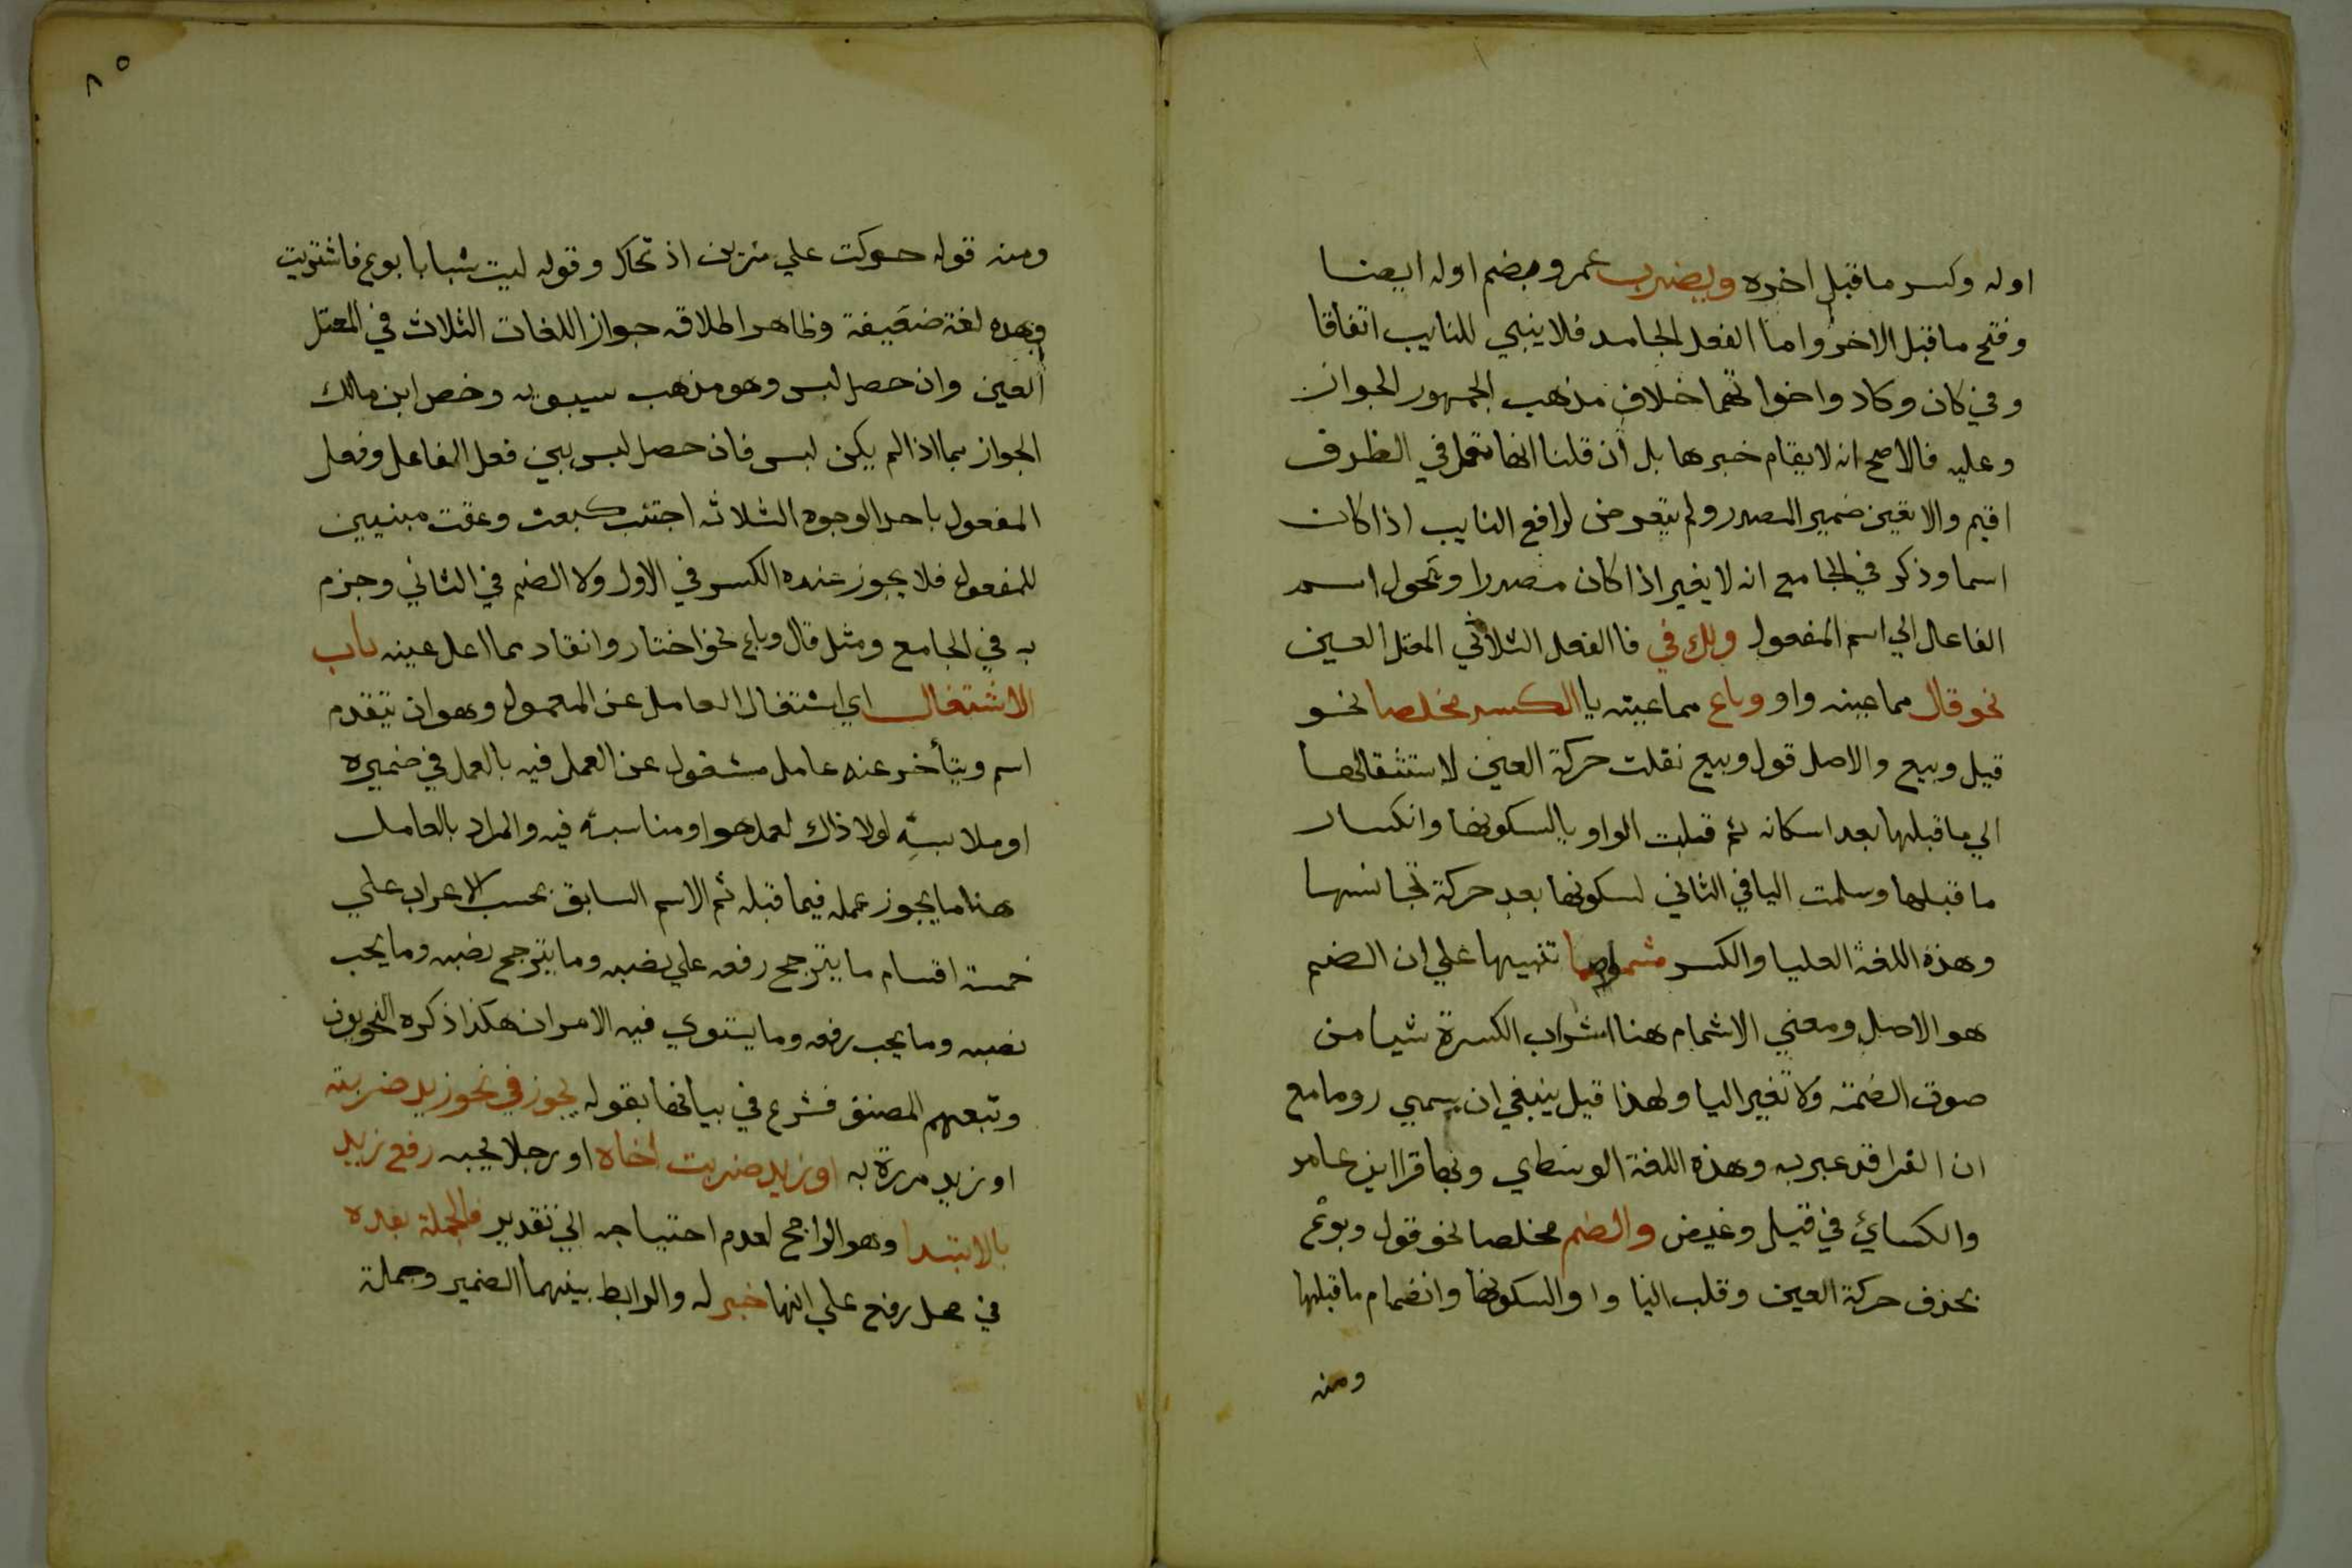 اوله وكسر ما قبل اخره ويضرب عمرو بضم اوله ايضا
وفتح ما قبل الاخر واما الفعل الجامد فلا يبني للنايب اتفاقا
وفي كان وكاد واخواتهما خلاف مذهب الجمهور الجواز
وعليه فالاصح انه لا يقام خبرها بل ان قلنا انها تعمل في الظرف
اقيم والا تعين ضمير المصدر ولم يتعرض لرافع النايب اذا كان
اسما وذكر في الجامع انه لا يغير اذا كان مصدرا وتحول اسم
الفاعل الي اسم المفعول ولك في فا الفعل الثلاثي المعتل العين
نحو قال مما عينه واو وباع مما عينه يا الكسر مخلصا نحو
قيل وبيع والاصل قول وبيع نقلت حركة العين لاستثقالها
الي ما قبلها بعد اسكانه ثم قبلت الواو يا لسكونها وانكسار
ما قبلها وسلمت اليا في الثاني لسكونها بعد حركة تجانسها
وهذه اللغة العليا والكسر مشما تنبيها علي ان الضم
هو الاصل ومعني الاشمام هنا اشراب الكسرة شيا من
صوت الضمة ولا تغير اليا ولهذا قيل ينبغي ان يسمي روما مع
ان الفرا قد عبر به وهذه اللغة الوسطي وبها قرا ابن عامر
والكسائ في قيل وغيض والضم مخلصا نحو قول وبوع
بحذف حركة العين وقلب اليا واوا لسكونها وانضمام ما قبلها
ومنه
٨٥
ومنه قوله حوكت علي نيرين اذ تحاك وقوله ليت شبابا بوع فاشتريت
وهذه لغة ضعيفة وظاهر اطلاقه جواز اللغات الثلاث في المعتل
العين وان حصل لبس وهو مذهب سيبويه وخص ابن مالك
الجواز بما اذا لم يكن لبس فان حصل لبس بين فعل الفاعل وفعل
المفعول باحد الوجوه الثلاثه اجتنب كبعت وعقت مبنيين
للمفعول فلا يجوز عنده الكسر في الاول ولا الضم في الثاني وجزم
به في الجامع ومثل قال وباع نحو اختار وانقاد مما اعل عينه باب
الاشتغال اي اشتغال العامل عن المعمول وهو ان يتقدم
اسم ويتأخر عنه عامل مشغول عن العمل فيه بالعمل في ضميره
او ملابسه لولا ذاك لعمل هو او مناسبه فيه والمراد بالعامل
هنا ما يجوز عمله فيما قبله ثم الاسم السابق بحسب الاعراب علي
خمسة اقسام ما يترجح رفعه علي نصبه وما يترجح نصبه وما يجب
نصبه وما يجب رفعه وما يستوي فيه الامران هكذا ذكره النحويون
وتبعهم المصنف فشرع في بيانها بقوله يجوز في نحو زيد ضربته
او زيد مررة به او زيد ضربت اخاه او رجلا يحبه رفع زيد
بالابتدا وهو الراجح لعدم احتياجه الي تقدير فالجملة بعده
في محل رفع علي انها خبر له والرابط بينهما الضمير وجملة